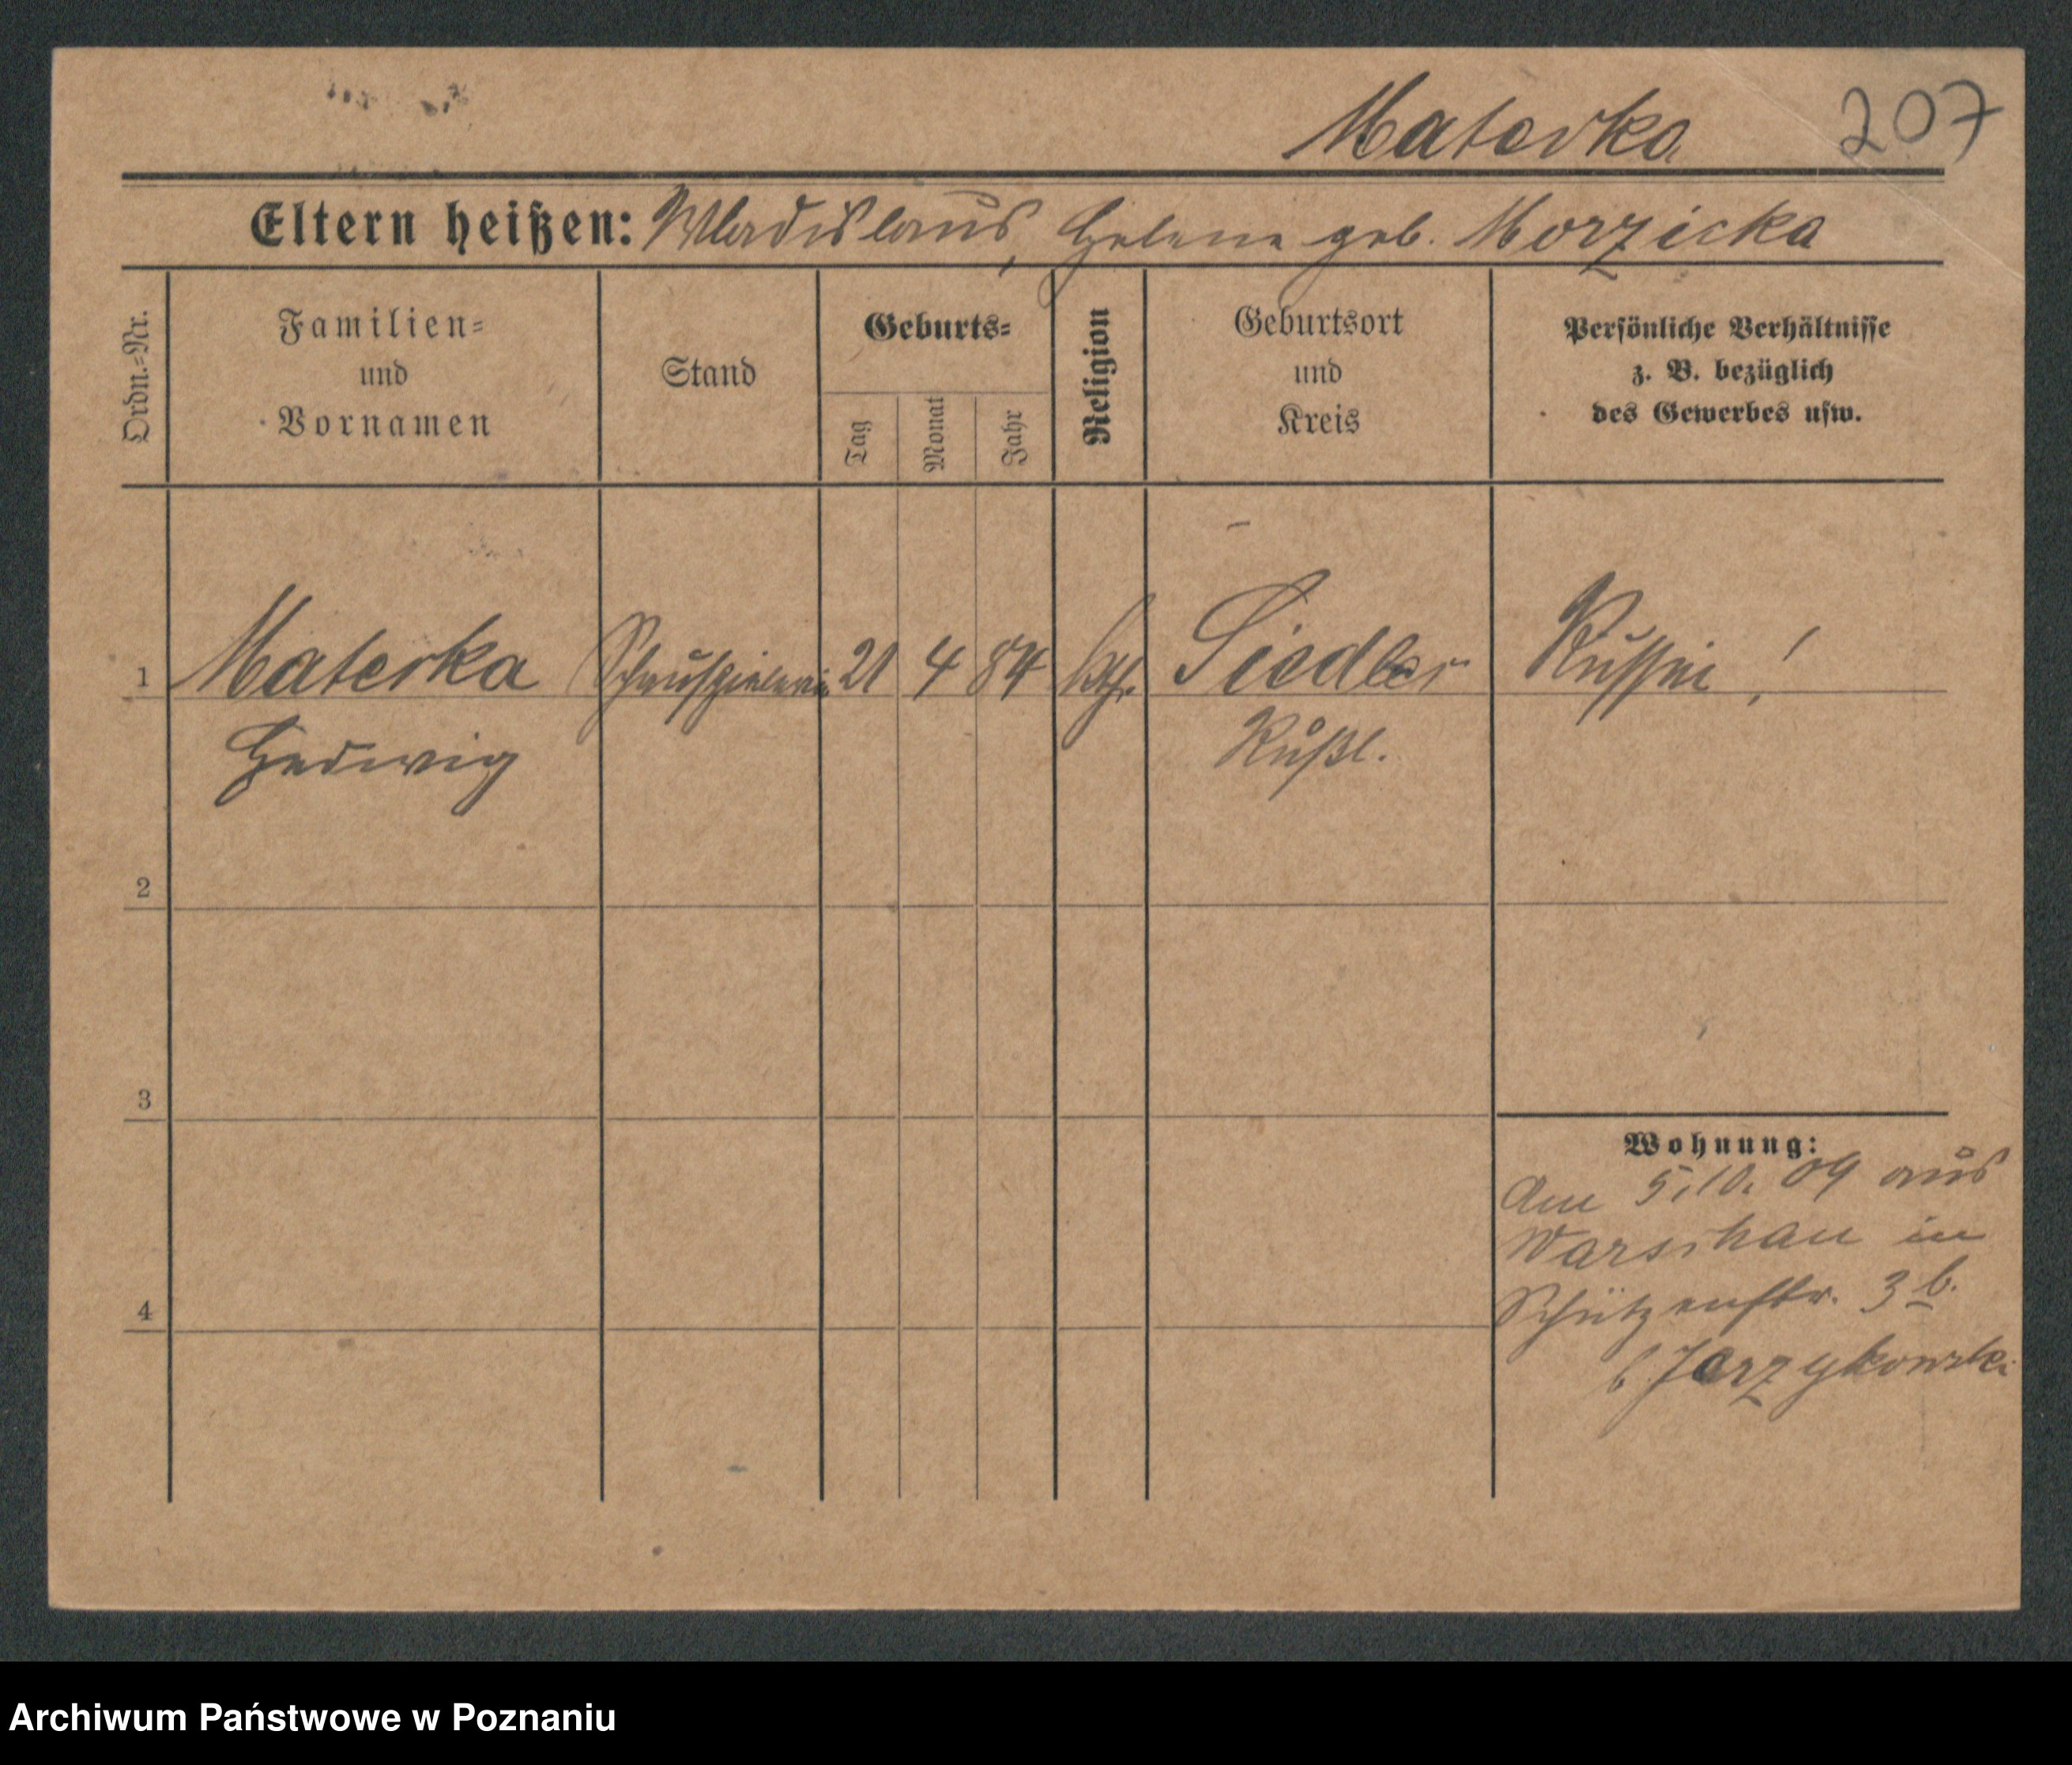 Materka 207
Eltern heißen: Wladislaus, Helene geb. Morzicka
Ordn.=Nr.
Familien=
und
Vornamen
Stand
Geburts=
Tag
Monat
Jahr
Religion
Geburtsort
und
Kreis
Persönliche Verhältnisse
z. B. bezüglich
des Gewerbes usw.
1 Materka Schauspielerin 21 4 84 kth. Siedler Russin!
Hedwig Rußl.
2
3
Wohnung:
Am 5.10.09 aus
Warschau in
4 Schützenstr. 3 b.
b. Jerzykowski
Archiwum Państwowe w Poznaniu